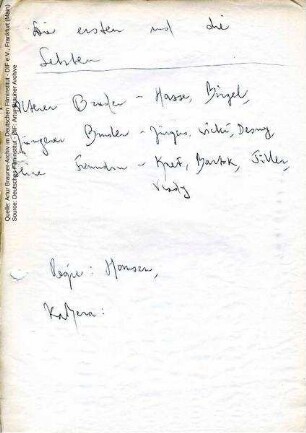 Die ersten und die
Letzten
Älterer Bruder - Hasse, Birgel,
Jüngerer Bruder - Jürgens, Wicki, Desny
Seine Freundin - Bartok, Tiller,
Regie: Hansen,
Kamera:
Quelle: Artur Brauner-Archiv im Deutschen Filminstitut - DIF e.V., Frankfurt (Main)
Source: Deutsches Filminstitut - DIF: Artur Brauner Archive